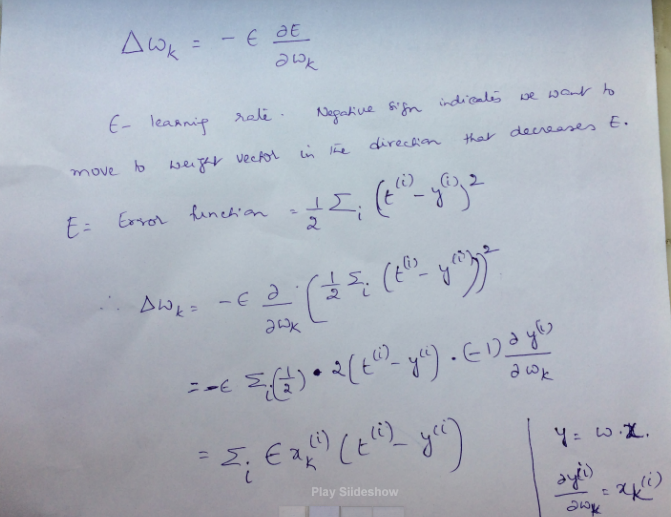 Δwₖ = - ϵ ∂E/∂wₖ
ϵ - learning rate. Negative sign indicates we want to
move to weight vector in the direction that decreases E.
E = Error function = 1/2 Σᵢ (t⁽ⁱ⁾ - y⁽ⁱ⁾)²
∴ Δwₖ = -ϵ ∂/∂wₖ (1/2 Σᵢ (t⁽ⁱ⁾ - y⁽ⁱ⁾))²
= -ϵ Σᵢ (1/2) • 2(t⁽ⁱ⁾ - y⁽ⁱ⁾) · (-1) ∂y⁽ⁱ⁾/∂wₖ
= Σᵢ ϵ xₖ⁽ⁱ⁾ (t⁽ⁱ⁾ - y⁽ⁱ⁾)
y = w·x.
∂y⁽ⁱ⁾/∂wₖ = xₖ⁽ⁱ⁾
Play Slideshow